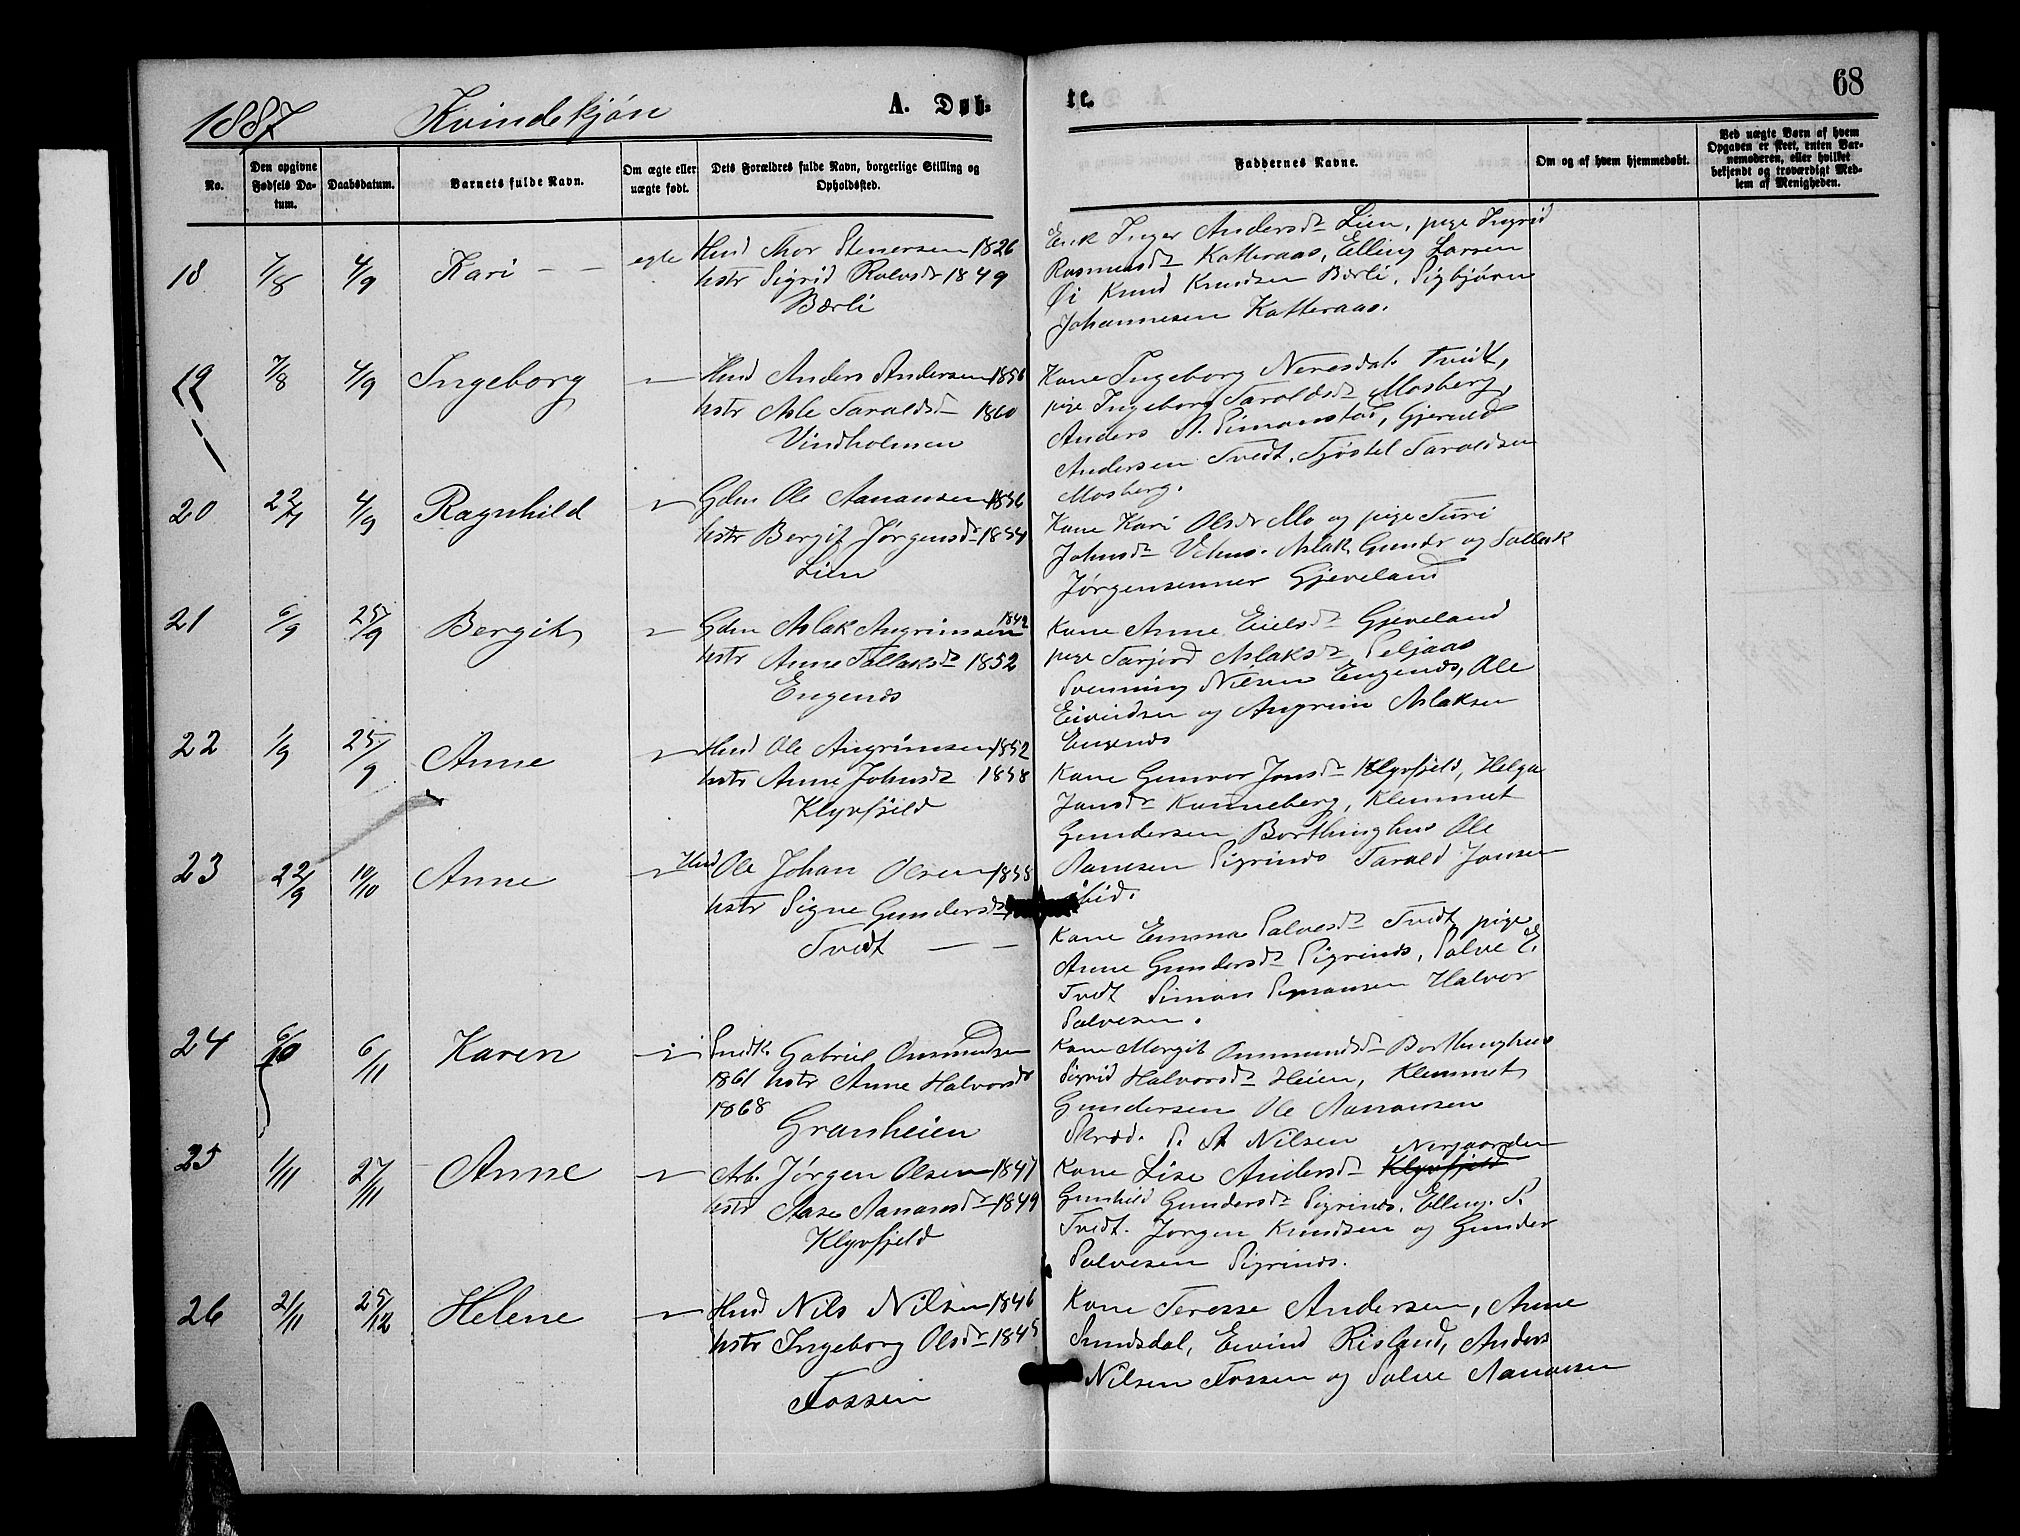 68
1887 Kvindekjøn A. Døb-
te.
No.
Den opgivne Fødsels Da-
tum.
Daabsdatum.
Barnets fulde Navn.
Om ægte eller
uægte født.
Dets Forældres fulde Navn, borgerlige Stilling og
Opholdssted.
Faddernes Navne.
Om og af hvem hjemmedøbt.
Ved uægte Børn af hvem
Opgaven er skeet, enten Bar-
nemoderen, eller hvilket
bekjendt og troværdigt Med-
lem af Menigheden.
18 7/8 4/9 Kari – – egte Husd Thor Stenersen 1826
hstr Sigrid Rolvsdr 1849
Bærli
Enk Inger Andersdr Lien, pige Ingrid
Rasmusdr Katteraas, Elling Larsen
Øi Knud Knudsen Bærli, Sigbjørn
Johannesen Katteraas.
19 7/8 4/9 Ingeborg – Husd Anders Andersen 1856
hstr Asle Taraldsdr 1860
Vindholmen
Kone Ingeborg Neresdatr Tvedt,
pige Ingeborg Taraldsdr Mosberg,
Anders A. Simonstad, Gjeruld
Andersen Tvedt, Tjøstel Taraldsen
Mosberg.
20 22/7 4/9 Ragnhild – Gdm Ole Aanansen 1856
hstr Bergit Jørgensdr 1854
Lien
Kone Kari Olsdr Mo og pige Turi
Johnsdr Vehus. Aslak, Gundr og Tallak
Jørgensenner Gjeveland
21 6/9 25/9 Bergit – Gdm Aslak Angrimsen 1842
hstr Anne Tallaksdr 1852
Engenes
Kone Anne Eielsdr Gjeveland
pige Tarjerd Aslaksdr Seljaas
Svenning Nilsen Engenes, Ole
Eivindsen og Angrim Aslaksen
Engenes
22 1/9 25/9 Anne – Husd Ole Angrimsen 1852
hstr Anne Johnsdr 1858
Klyvfjeld
Kone Gunvor Jonsdr Klyvfjeld, Helga
Jonsdr Kanneberg, Klemmet
Gundersen Borthinghus Ole
Aanesen Sigrinds Tarald Jonsen
ibid.
23 22/9 10/10 Anne – Husd Ole Johan Olsen 1855
hstr Signe Gundersdr
Tvedt – –
Kone Emma Salvesdr Tvedt, pige
Anne Gundersdr Sigrinds, Salve E.
Tvedt Simon Simonsen Halvor
Salvesen.
24 6/10 6/11 Karen – Snedk. Gabriel Omsmundsen
1861 hstr Anne Halvorsdr
1868
Granheien
Kone Mergit Ommundsdr Borthinghus
Sigrid Halvorsdr Heien, Klemmet
Gundersen Ole Aanonsen
Skræd. S. A Nilsen
25 1/11 27/11 Anne – Arb. Jørgen Olsen 1847
hstr Aase Aanonsdr 1849
Klyvfjeld
Nergaarden
Kone Lise Andersdr Klyvfjeld
Gunhild Gundersdr Sigrinds, Elling S.
Tvedt. Jørgen Knudsen og Gunder
Salvesen Sigrinds.
26 21/11 25/12 Helene – Husd Nils Nilsen 1846
hstr Ingeborg Olsdr 1845
Fossen
Kone Teresse Andersen, Anne
Sundsdal, Eivind Risland, Anders
Nilsen Fossen og Salve Aanonsen